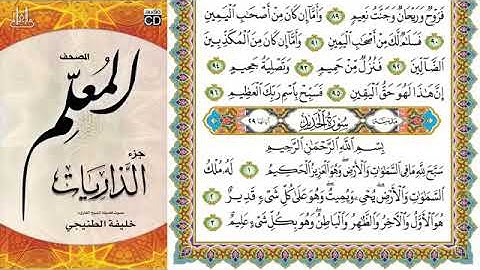 audio
CD
المصحف
المعلّم
جزء
الذاريات
خليفة الطنيجي
فَرَوْحٌ وَرَيْحَانٌ وَجَنَّتُ نَعِيمٍ ٨٩ وَأَمَّآ إِن كَانَ مِنْ أَصْحَٰبِ ٱلْيَمِينِ
٩٠ فَسَلَٰمٌ لَّكَ مِنْ أَصْحَٰبِ ٱلْيَمِينِ ٩١ وَأَمَّآ إِن كَانَ مِنَ ٱلْمُكَذِّبِينَ
ٱلضَّآلِّينَ ٩٢ فَنُزُلٌ مِّنْ حَمِيمٍ ٩٣ وَتَصْلِيَةُ جَحِيمٍ ٩٤
إِنَّ هَٰذَا لَهُوَ حَقُّ ٱلْيَقِينِ ٩٥ فَسَبِّحْ بِٱسْمِ رَبِّكَ ٱلْعَظِيمِ ٩٦
سُورَةُ الحَدِيدِ
بِسْمِ ٱللَّهِ ٱلرَّحْمَٰنِ ٱلرَّحِيمِ
سَبَّحَ لِلَّهِ مَا فِي ٱلسَّمَٰوَٰتِ وَٱلْأَرْضِ وَهُوَ ٱلْعَزِيزُ ٱلْحَكِيمُ ١ لَهُۥ مُلْكُ
ٱلسَّمَٰوَٰتِ وَٱلْأَرْضِ يُحْيِۦ وَيُمِيتُ وَهُوَ عَلَىٰ كُلِّ شَيْءٍ قَدِيرٌ ٢
هُوَ ٱلْأَوَّلُ وَٱلْءَاخِرُ وَٱلظَّٰهِرُ وَٱلْبَاطِنُ وَهُوَ بِكُلِّ شَيْءٍ عَلِيمٌ ٣